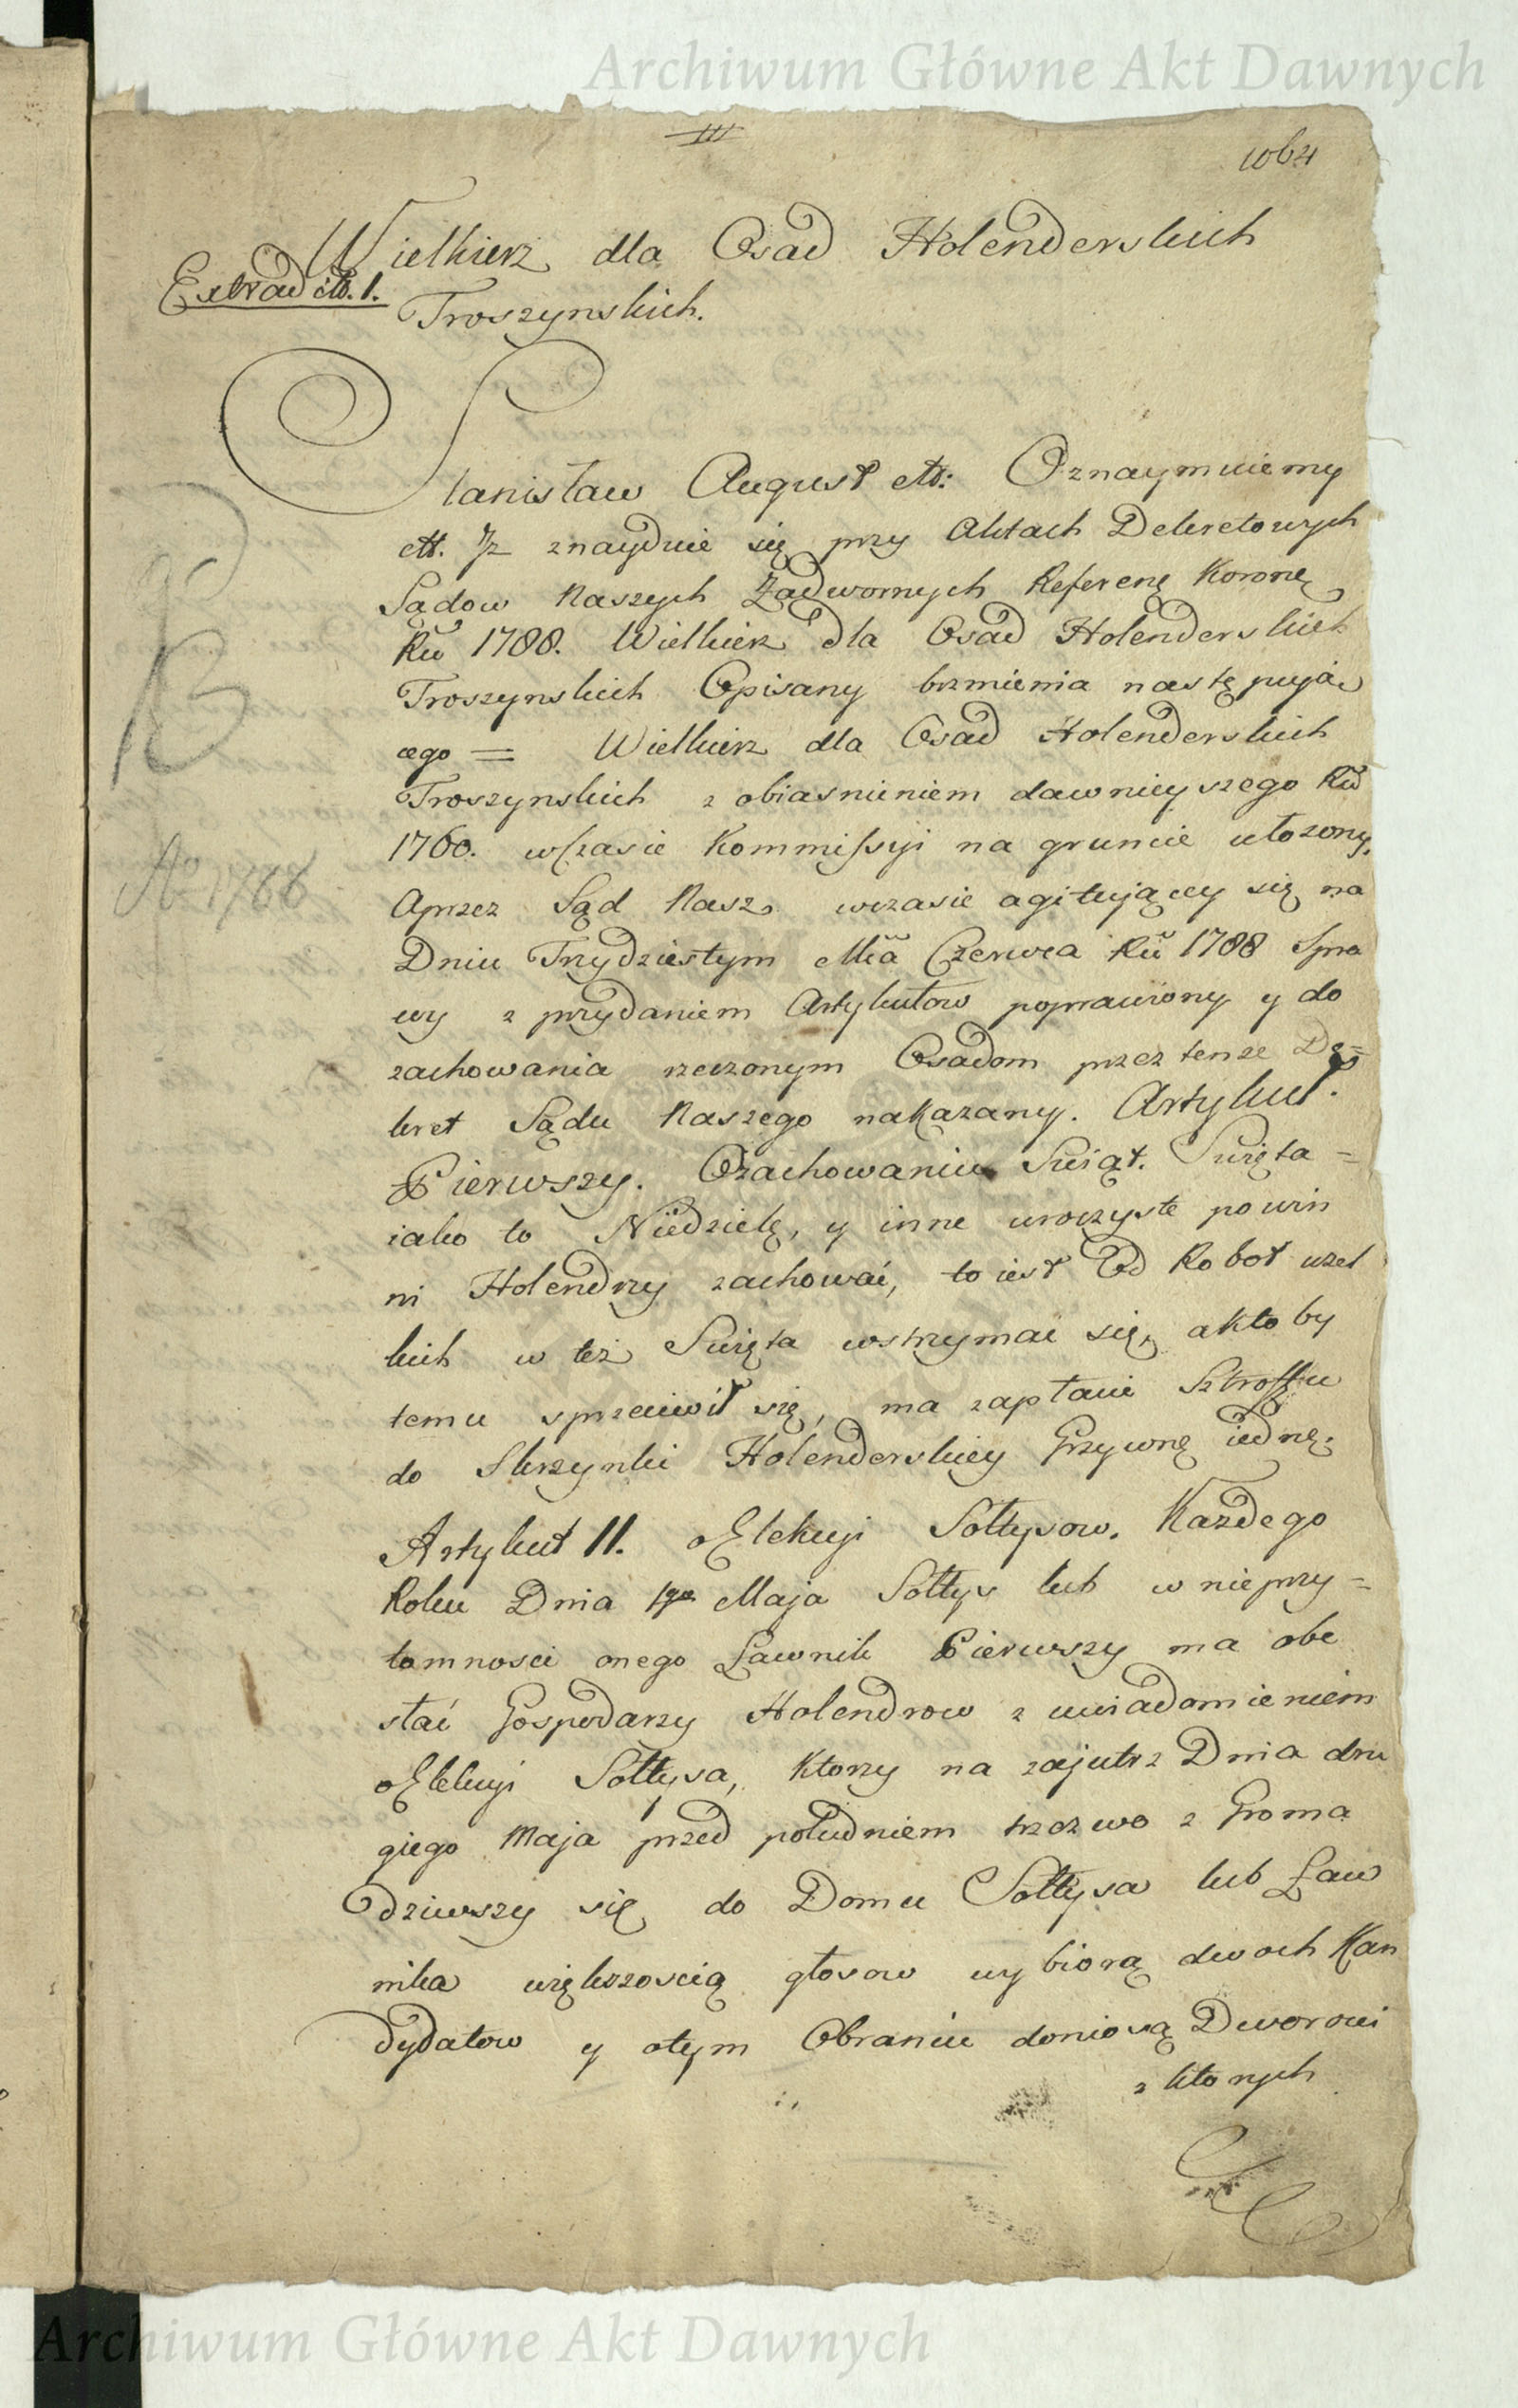 Archiwum Główne Akt Dawnych
III
1064
Wielkierz dla Osad Holenderskich
Extrad etb. 1.
Troszynskich.
Stanisław August etc: Oznaymuiemy
ett. Jż znayduie się przy Aktach Dekretowych
Sądow Naszych Zadwornych Referenc Koronę
Ru 1788. Wielkierz dla Osad Holenderskich
Troszynskich Opisany brzmienia następują
cego = Wielkierz dla Osad Holenderskich
Troszynskich z obiasnieniem dawnieyszego Ru
1760. wczasie Kommissyi na gruncie ułozony,
Aprzez Sąd Nasz wczasie agitującey się na
Dniu Trzydziestym Mca Czerwca Ru 1788 Spra
wy z przydaniem Artykułow poprawiony y do
zachowania rzeczonym Osadom przez tenze De=
kret Sądu Naszego nakazany. Artykuł.
Pierwszy. Ozachowaniu Swiąt. Swięta =
iako to Niedzielę, y inne uroczyste powin
ni Holendrzy zachować, to iest Od Robot wzel
kich w też Swięta wstrzymać się, aktoby
temu sprzeciwił się, ma zapłacic Sztroffu
do Skrzynki Holenderskiey Grzywnę iednę.
Artykuł II. oElekcyi Sołtysow. Każdego
Roku Dnia 1go Maja Sołtys lub w nieprzy=
tomnosci onego Ławnik Pierwszy ma obe
słać Gospodarzy Holendrow z uwiadomieniem
oElekcyi Sołtysa, Ktorzy na zajutrz Dnia dru
giego Maja przed południem trzezwo z Groma
dziwszy się do Domu Sołtysa lub Ław
nika większoscią głosow wybiorą dwoch Kan
dydatow y otym Obraniu doniosą Dworowi
z ktorych
B
Ao 1788
Archiwum Główne Akt Dawnych